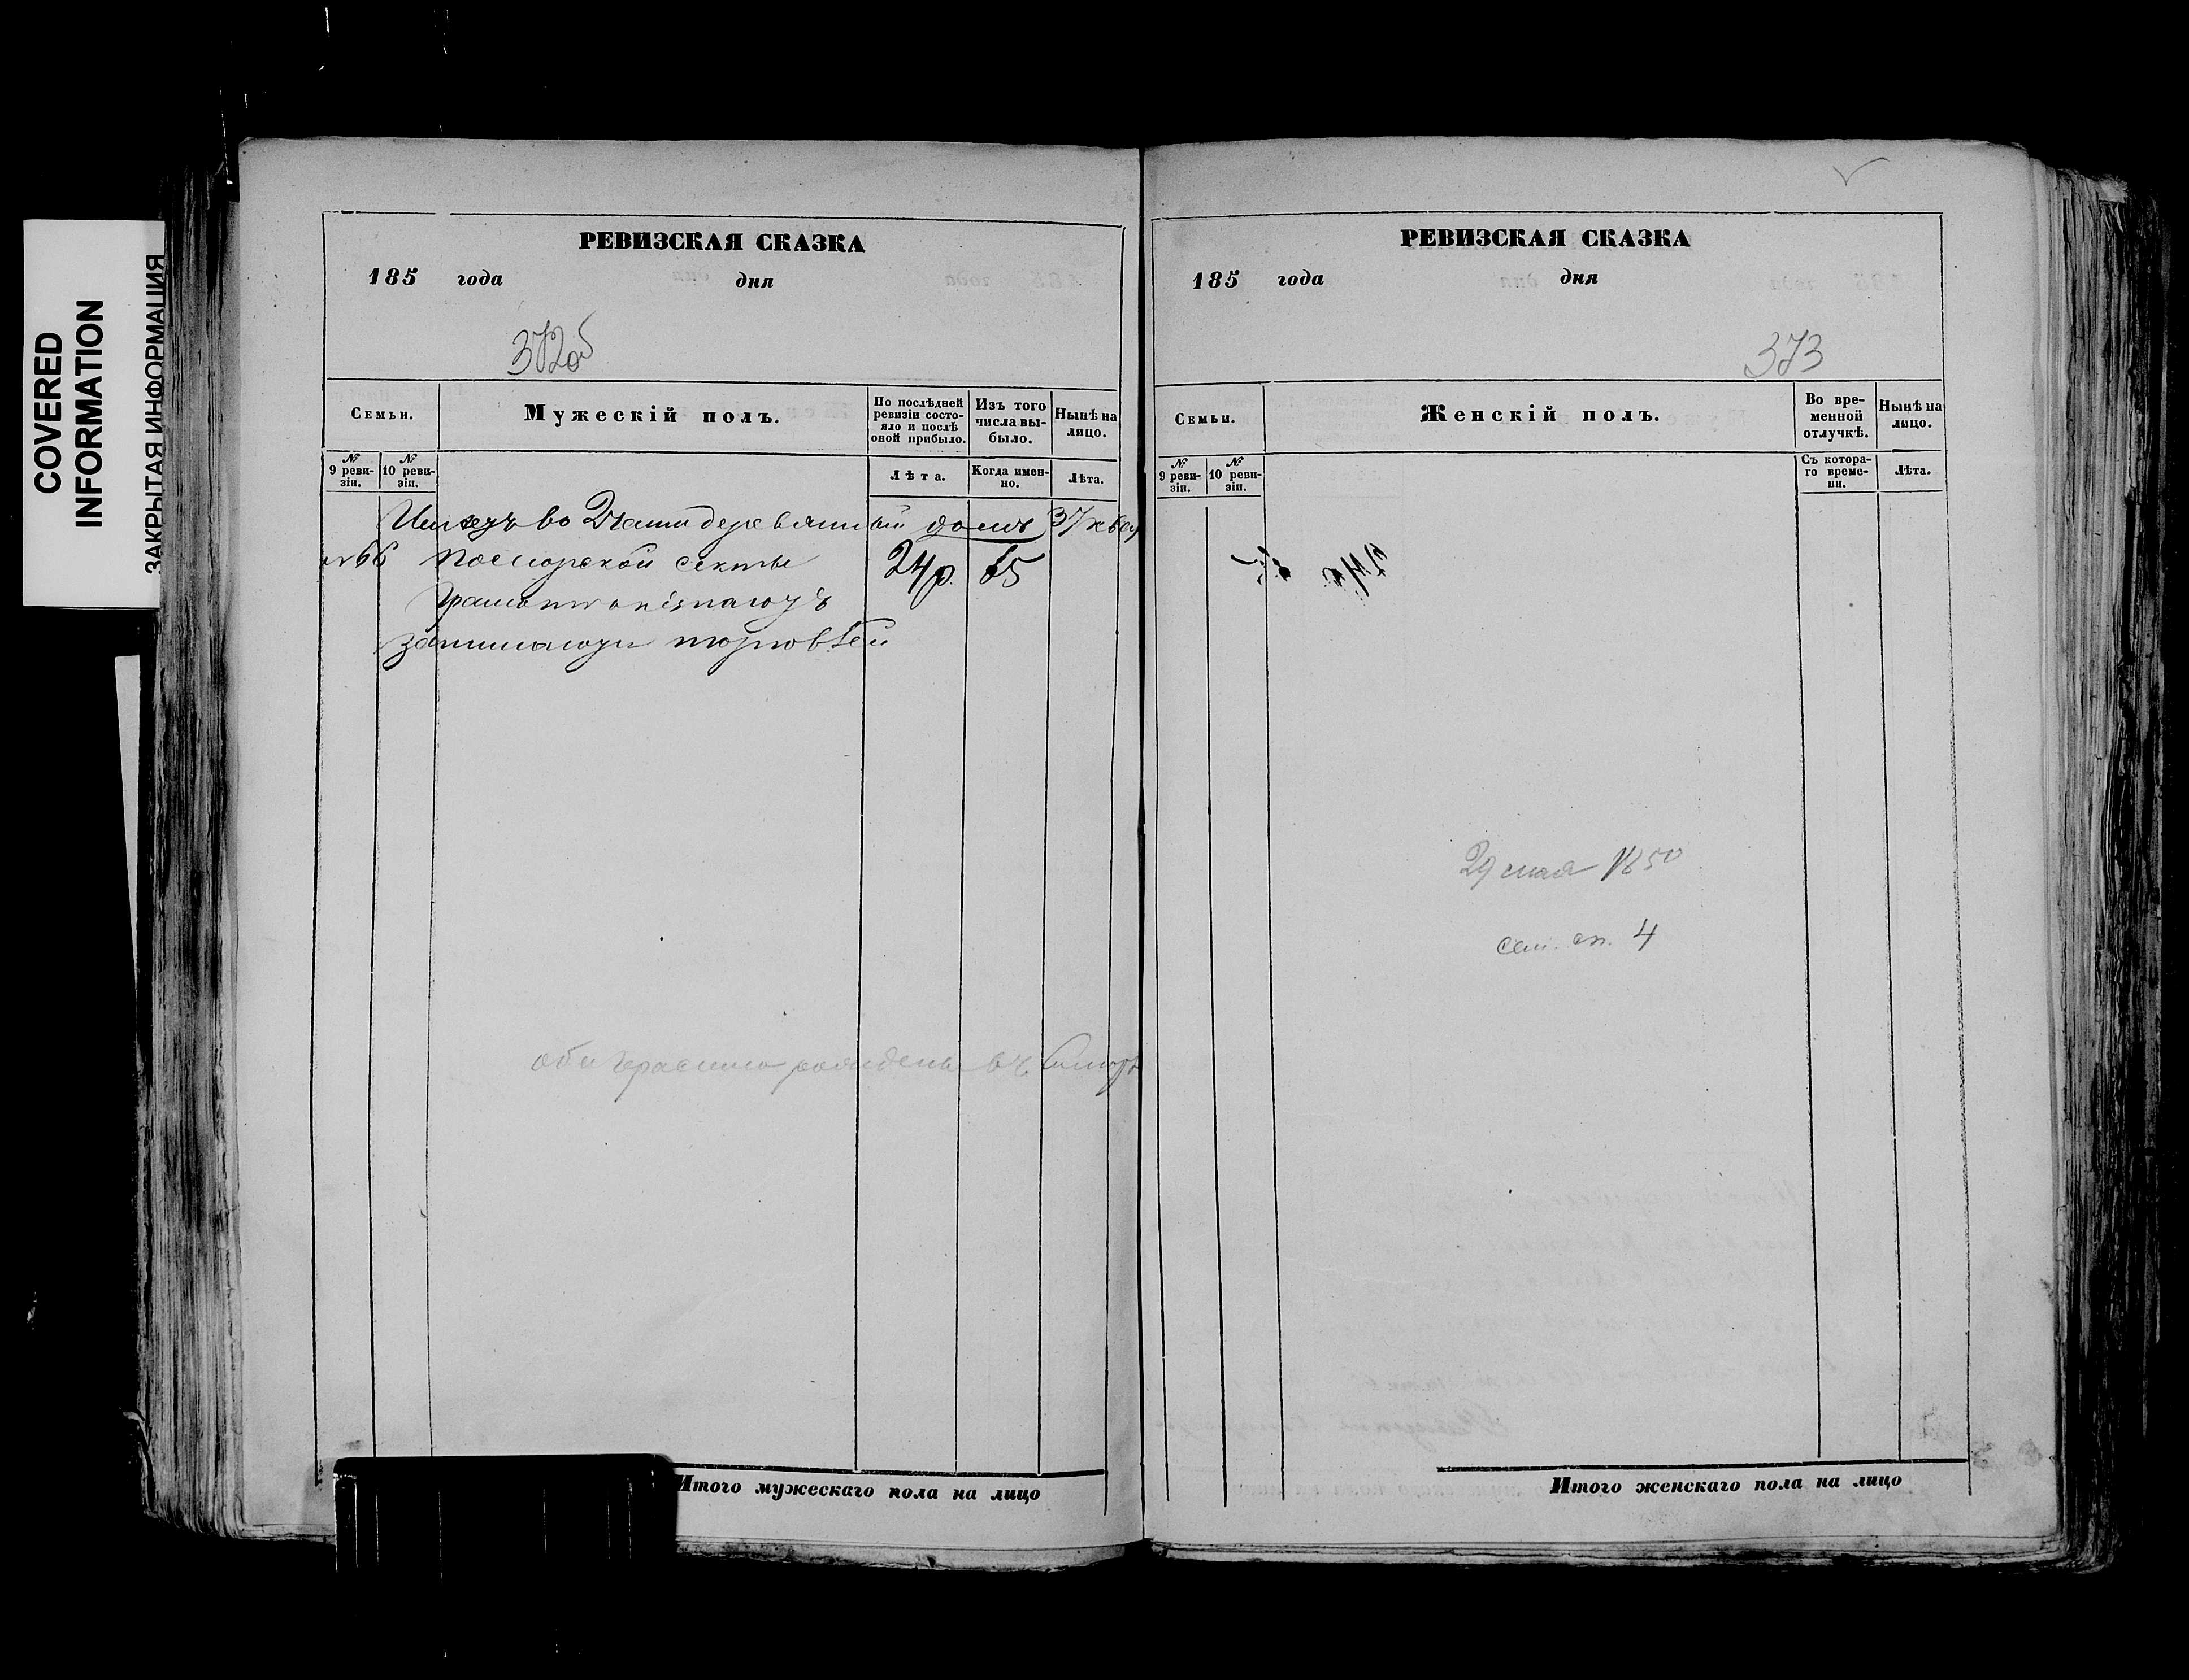 COVERED
INFORMATION
ЗАКРЫТАЯ ИНФОРМАЦИЯ
РЕВИЗСКАЯ СКАЗКА
185 года дня
372об
Семьи.
Мужескій полъ.
По послѣдней ревизіи состояло и послѣ оной прибыло.
Изъ того числа выбыло.
Нынѣ на лицо.
№ 9 ревизіи.
№ 10 ревизіи.
Лѣта.
Когда именно.
Лѣта.
Имеютъ во 2 части деревянный домъ 37 квар
№ 66 поморской секты 24 р 65
Грамотѣ знаютъ
занимаются торговлей
оба Герасима рождены въ
Итого мужескаго пола на лицо
РЕВИЗСКАЯ СКАЗКА
185 года дня
373
Семьи.
Женскій полъ.
Во временной отлучкѣ.
Нынѣ на лицо.
№ 9 ревизіи.
№ 10 ревизіи.
Съ котораго времени.
Лѣта.
29 мая 1850
сем. сп. 4
Итого женскаго пола на лицо